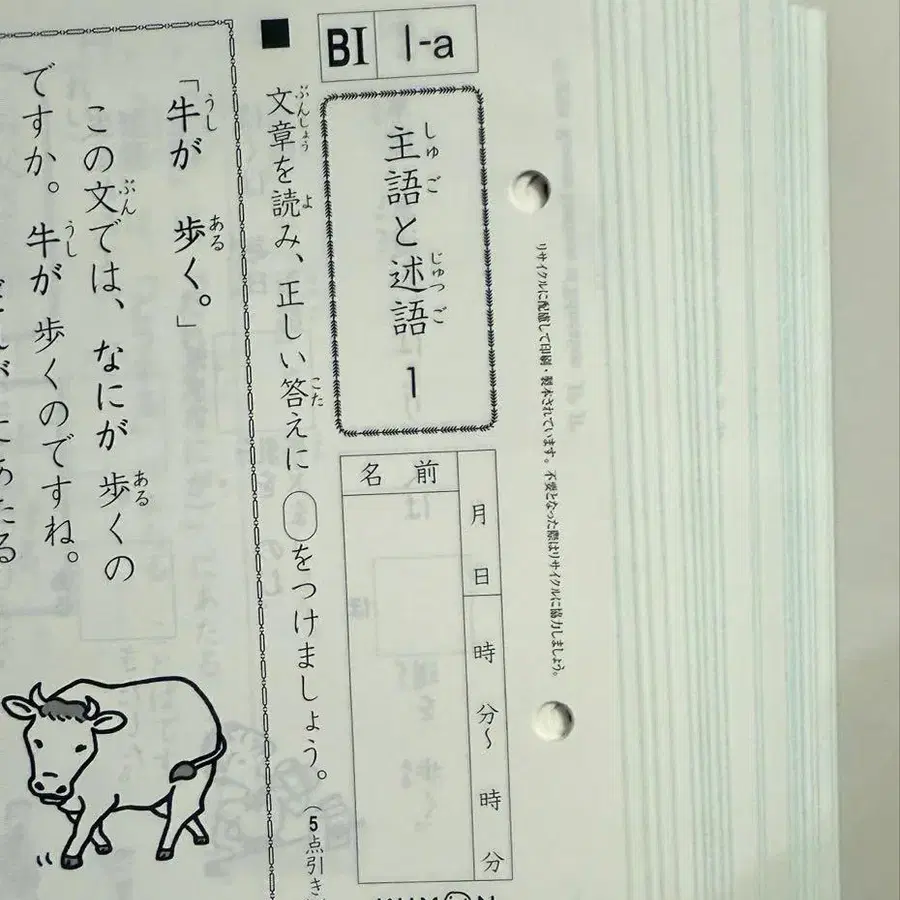 BI 1-a
主語と述語 1
しゅ ご じゅつ ご
リサイクルに配慮して印刷・製本されています。不要となった際はリサイクルに協力しましょう。
名前
月 日
時 分〜 時 分
■ 文章を読み、正しい答えに○をつけましょう。(5点引き
ぶんしょう よ こた
「牛が 歩く。」
うし ある
この文では、なにが 歩くの
ぶん ある
ですか。牛が 歩くのですね。
うし